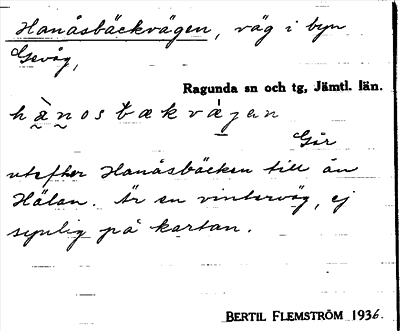 Hanåsbäckvägen, väg i byn
Gevåg,
Ragunda sn och tg, Jämtl. län.
hànosbækvágan
Går
utefter Hanåsbäcken till ån
Hälan. Är en vinterväg, ej
synlig på kartan.
BERTIL FLEMSTRÖM 1936.